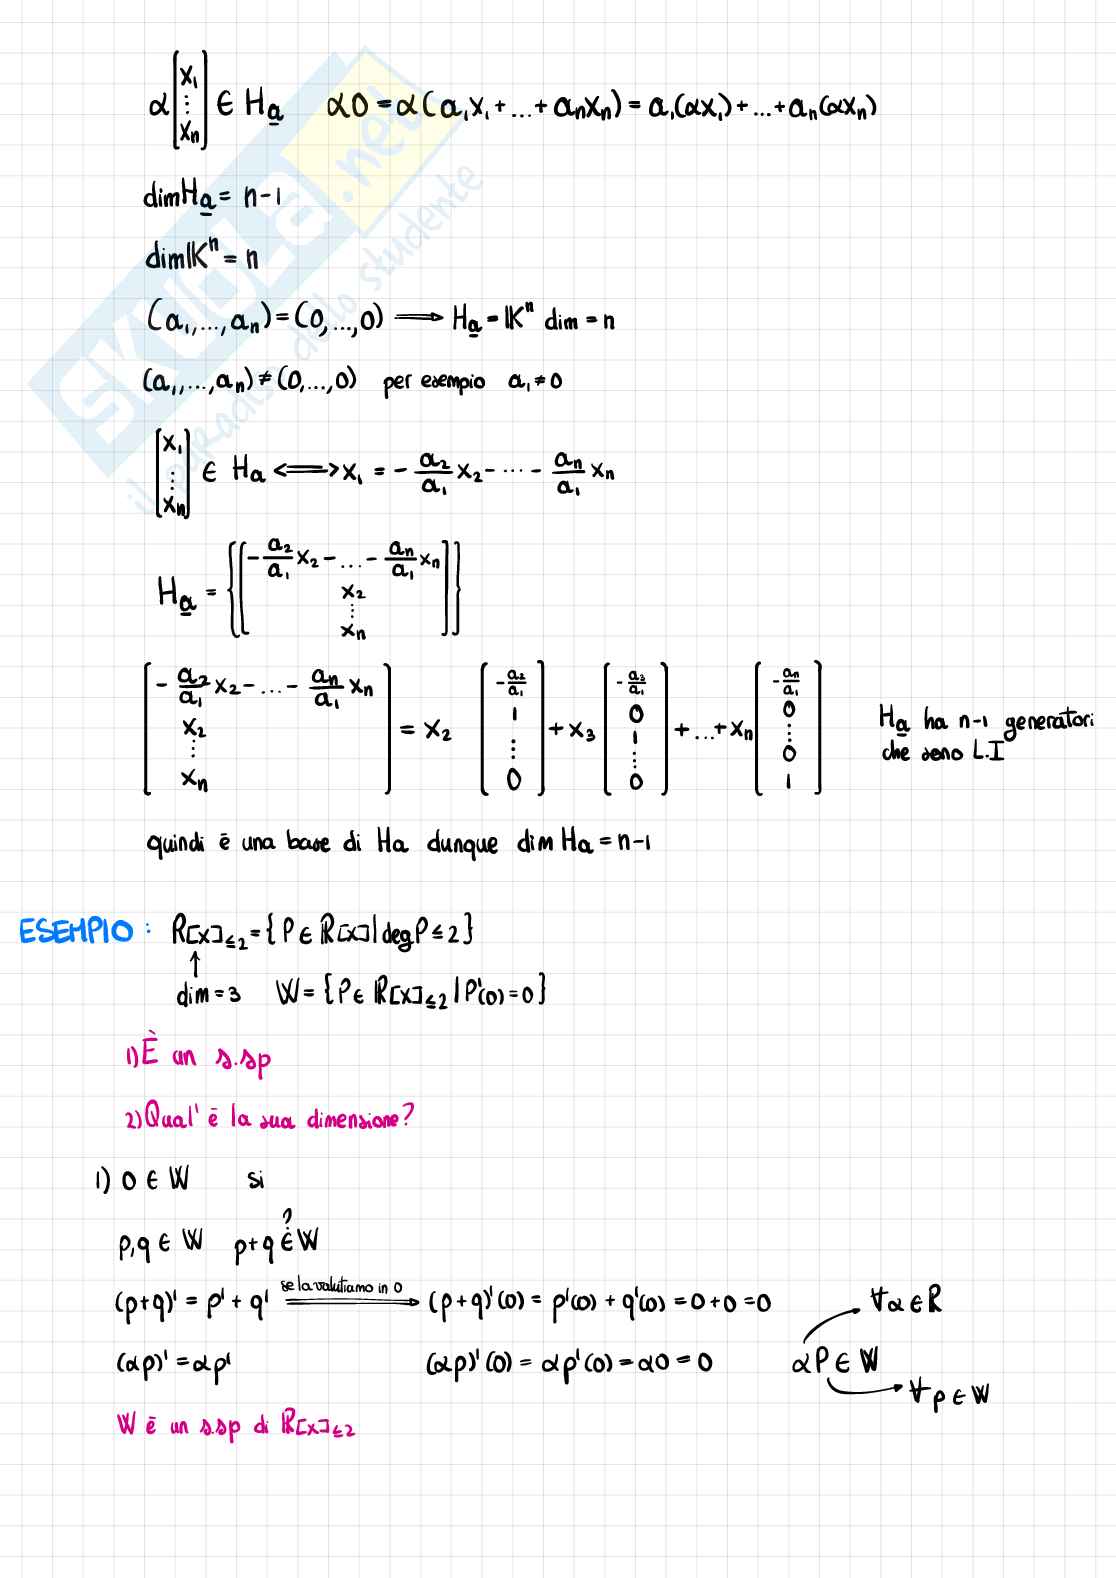 α[x₁ ⋮ xₙ] ∈ Hₐ   α0 = α(a₁x₁+...+aₙxₙ) = a₁(αx₁)+...+aₙ(αxₙ)
dimHₐ = n-1
dim𝕂ⁿ = n
(a₁,...,aₙ) = (0,...,0) ⟹ Hₐ = 𝕂ⁿ dim = n
(a₁,...,aₙ) ≠ (0,...,0) per esempio a₁ ≠ 0
[x₁ ⋮ xₙ] ∈ Hₐ ⟺ x₁ = - a₂/a₁ x₂ - ... - aₙ/a₁ xₙ
Hₐ = {[-a₂/a₁ x₂ - ... - aₙ/a₁ xₙ, x₂ ⋮ xₙ]}
[-a₂/a₁ x₂ - ... - aₙ/a₁ xₙ, x₂ ⋮ xₙ] = x₂ [-a₂/a₁ 1 ⋮ 0] + x₃ [-a₃/a₁ 0 1 ⋮ 0] + ... + xₙ [-aₙ/a₁ 0 ⋮ 0 1]
Hₐ ha n-1 generatori
che sono L.I
quindi ē una base di Ha dunque dim Ha = n-1
ESEMPIO : ℝ[x]≤2 = {P ∈ ℝ[x] | deg P ≤ 2}
↑
dim = 3   W = {P ∈ ℝ[x]≤2 | P'(0) = 0}
1) È un s.sp
2) Qual' ē la sua dimensione?
1) 0 ∈ W   si
?
p,q ∈ W   p+q ∈ W
(p+q)' = p' + q' se la valutiamo in 0 ⟹ (p+q)'(0) = p'(0) + q'(0) = 0+0 = 0   ∀α ∈ ℝ
(αp)' = αp'   (αp)'(0) = αp'(0) = α0 = 0   αP ∈ W
∀p ∈ W
W ē un s.sp di ℝ[x]≤2
SKUOLA.net
il paradiso dello studente